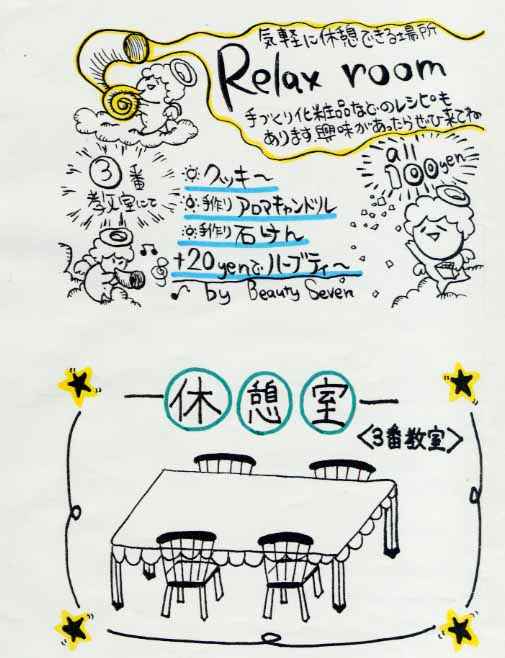 気軽に休憩できる場所
Relax room
手づくり化粧品などのレシピも
あります興味があったらぜひ来てね
③番
教室にて
all
100yen
クッキー
手作りアロマキャンドル
手作り石けん
+20yenでハーブティー
by Beauty Seven
休憩室
<3番教室>